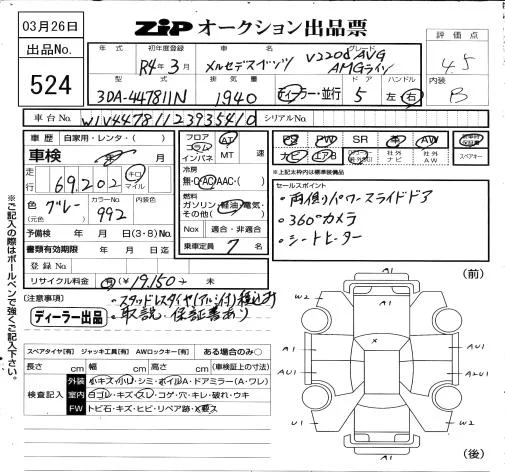 03月26日
ZIP オークション出品票
出品No.
524
年式 初年度登録 車名 グレード 評価点
R4年3月 メルセデスベンツ V220d AVG
AMGライン
4.5
型式 排気量 ドア ハンドル 内装
3DA-447811N 1940 ディーラー・並行 5 左・右 B
車台No. W1V44781123935410 シリアルNo.
車歴 自家用・レンタ・( )
車検 年 月
走行 69,202 キロ マイル
色 グレー (元色) カラーNo. 992 内装色
予備検 年 月 日(3・8)No.
書類有効期限 年 月 日迄
登録No.
リサイクル料金 済 ¥19,150- 未
フロア コラム インパネ AT MT 速
冷房 無・AC・AAC・( )
燃料 ガソリン・軽油・電気・その他( )
Nox 適合・非適合
乗車定員 7 名
PS PW SR 革 AW 新車時保証書
ナビ エアB 社外ナビ 社外AW スペアキー
*上記太わく内は標準装備品
セールスポイント
・両側パワースライドドア
・360°カメラ
・シートヒーター
(注意事項)
・スタッドレスタイヤ(アルミ付)積込み
・取説・保証書あり
ディーラー出品
スペアタイヤ[有] ジャッキ工具[有] AWロックキー[有] ある場合のみ○
長さ cm 幅 cm 高さ cm (車検証上の寸法)
検査記入
外装 小キズ・小U・シミ・ボイルA・ドアミラー(A・ワレ)
室内 ヨゴレ・キズ・スレ・コゲ・穴・キレ・破れ・ウキ
FW トビ石・キズ・ヒビ・リペア跡・X要ス
※ご記入の際はボールペンで強くご記入下さい。
(前)
A1
W2 W2
A1 AU1
A1 A2U1
U1 W2
A1
(後)